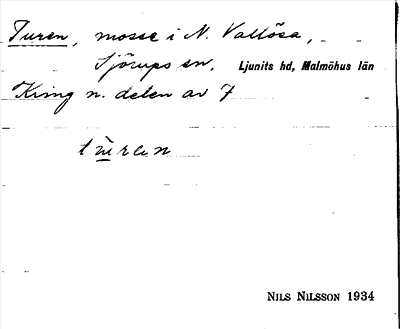 Turen, mosse i N. Vallösa,
Sjörups sn. Ljunits hd, Malmöhus län
Kring n. delen av 7
tùrɐn
NILS NILSSON 1934